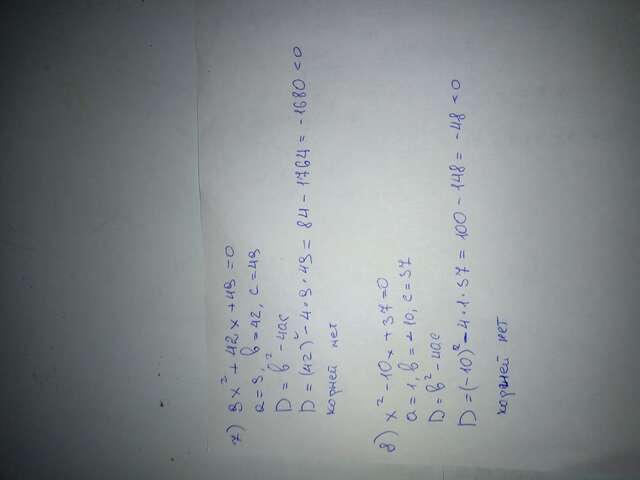 7) 9x² + 42x + 49 = 0
a = 9, b = 42, c = 49
D = b² - 4ac
D = (42)² - 4·9·49 = 84 - 1764 = -1680 < 0
корней нет
8) x² - 10x + 37 = 0
a = 1, b = -10, c = 37
D = b² - 4ac
D = (-10)² - 4·1·37 = 100 - 148 = -48 < 0
корней нет